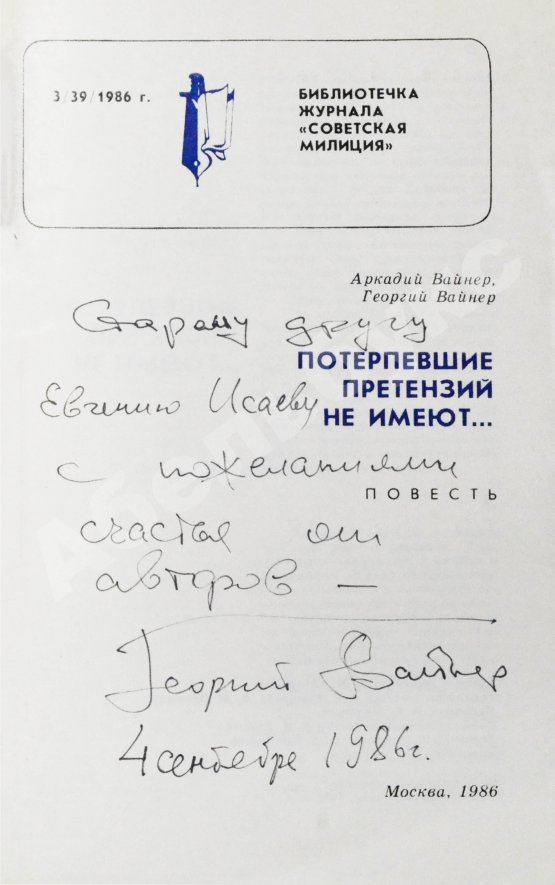 3/39/1986 г.
БИБЛИОТЕЧКА
ЖУРНАЛА
«СОВЕТСКАЯ
МИЛИЦИЯ»
Аркадий Вайнер,
Георгий Вайнер
Старому другу
ПОТЕРПЕВШИЕ
ПРЕТЕНЗИЙ
НЕ ИМЕЮТ...
Евгению Исаеву
с пожеланиями
ПОВЕСТЬ
счастья от
авторов —
Георгий Вайнер
4 сентебре 1986г.
Москва, 1986